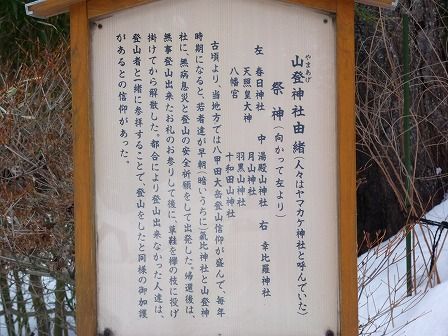 やまあげ
山登神社由緒(人々はヤマカケ神社と呼んでいた)
祭神(向かって左より)
左 春日神社 中 湯殿山神社 右 幸比羅神社
天照皇大神 月山神社
八幡宮 羽黒山神社
十和田山神社
古頃より、当地方では八甲田大岳登山信仰が盛んで、毎年
時期になると、若者達が早朝(暗いうちに)氣比神社と山登神
社に、無病息災と登山の安全祈願をして出発した。帰還後は、
無事登山出来たお礼のお参りして後に、草鞋を欅の枝に投げ
掛けてから解散した。都合により登山出来なかった人達は、
登山者と一緒に参拝することで、登山をしたと同様の御加護
があるとの信仰があった。